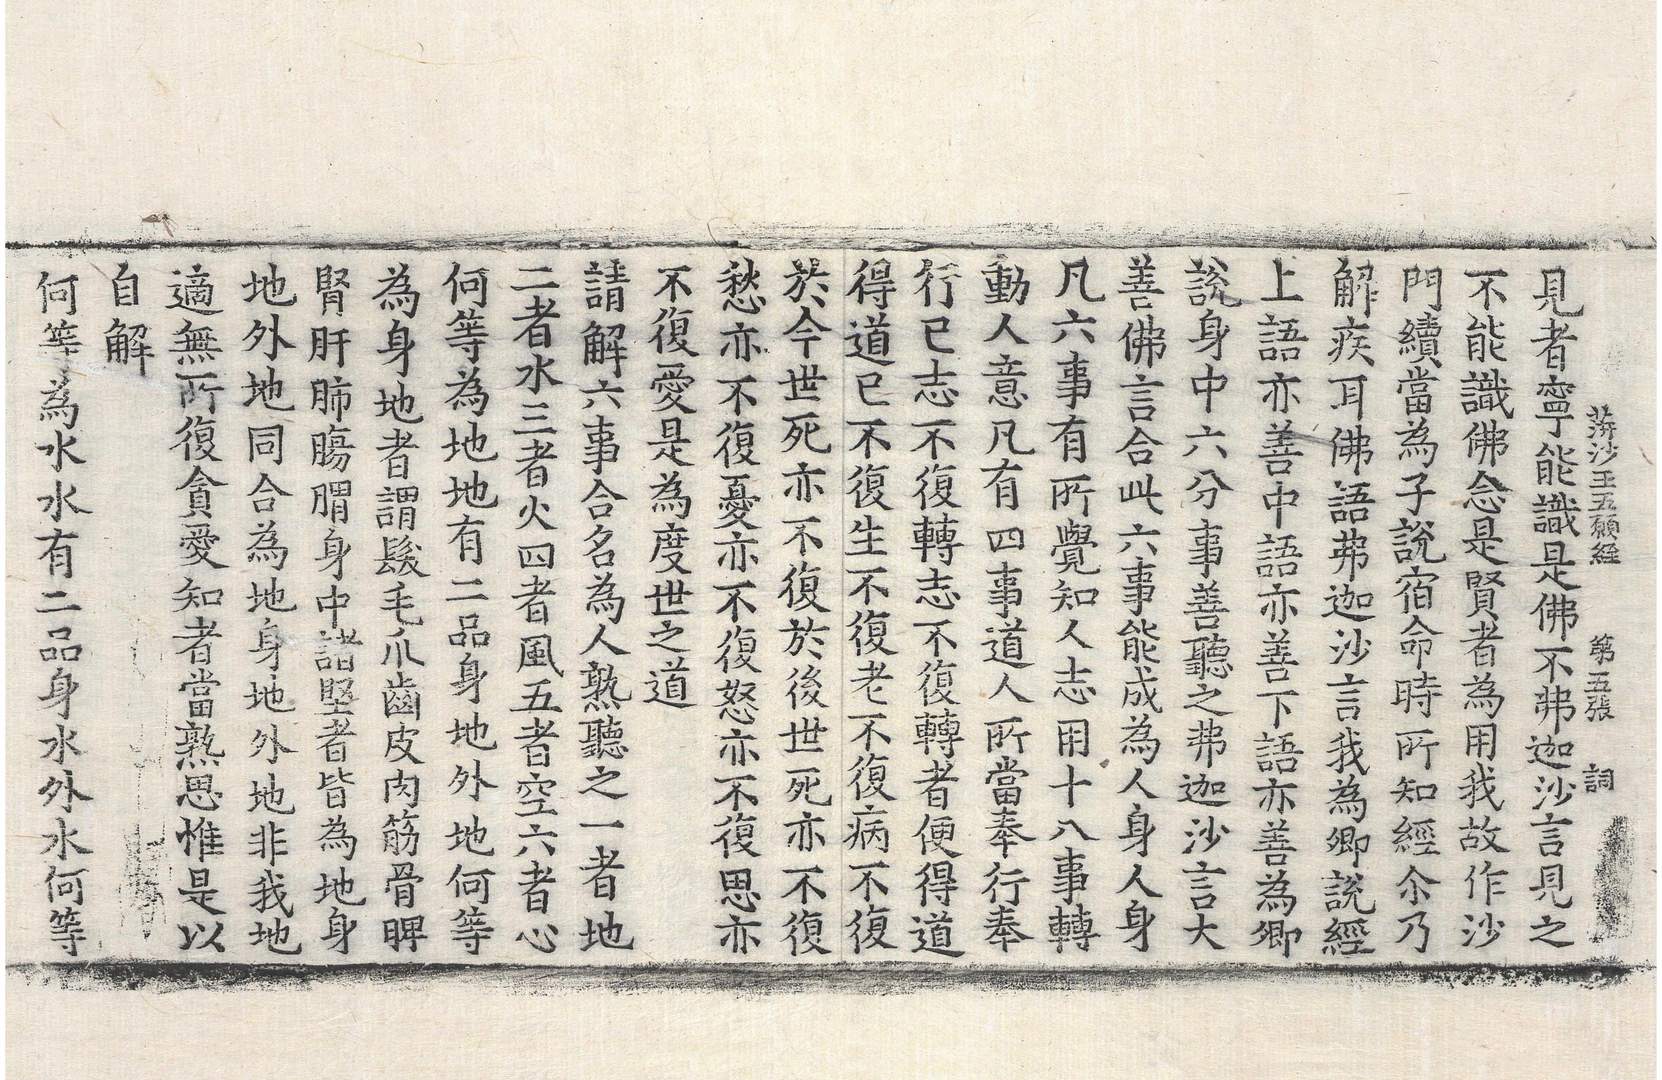 蓱沙王五願經 第五張 詞
見者寧能識是佛不弗迦沙言見之
不能識佛念是賢者為用我故作沙
門續當為子說宿命時所知經尒乃
解疾耳佛語弗迦沙言我為卿說經
上語亦善中語亦善下語亦善為卿
說身中六分事善聽之弗迦沙言大
善佛言合此六事能成為人身人身
凡六事有所覺知人志用十八事轉
動人意凡有四事道人所當奉行奉
行已志不復轉志不復轉者便得道
得道已不復生不復老不復病不復
於今世死亦不復於後世死亦不復
愁亦不復憂亦不復怒亦不復思亦
不復愛是為度世之道
請解六事合名為人熟聽之一者地
二者水三者火四者風五者空六者心
何等為地地有二品身地外地何等
為身地者謂髮毛爪齒皮肉筋骨脾
腎肝肺腸胃身中諸堅者皆為地身
地外地同合為地身地外地非我地
適無所復貪愛知者當熟思惟是以
自解
何等為水水有二品身水外水何等